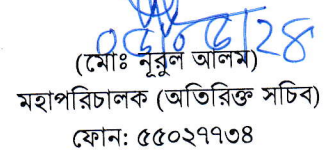 (মোঃ নূরুল আলম)
মহাপরিচালক (অতিরিক্ত সচিব)
ফোন: ৫৫০২৭৭৩৪